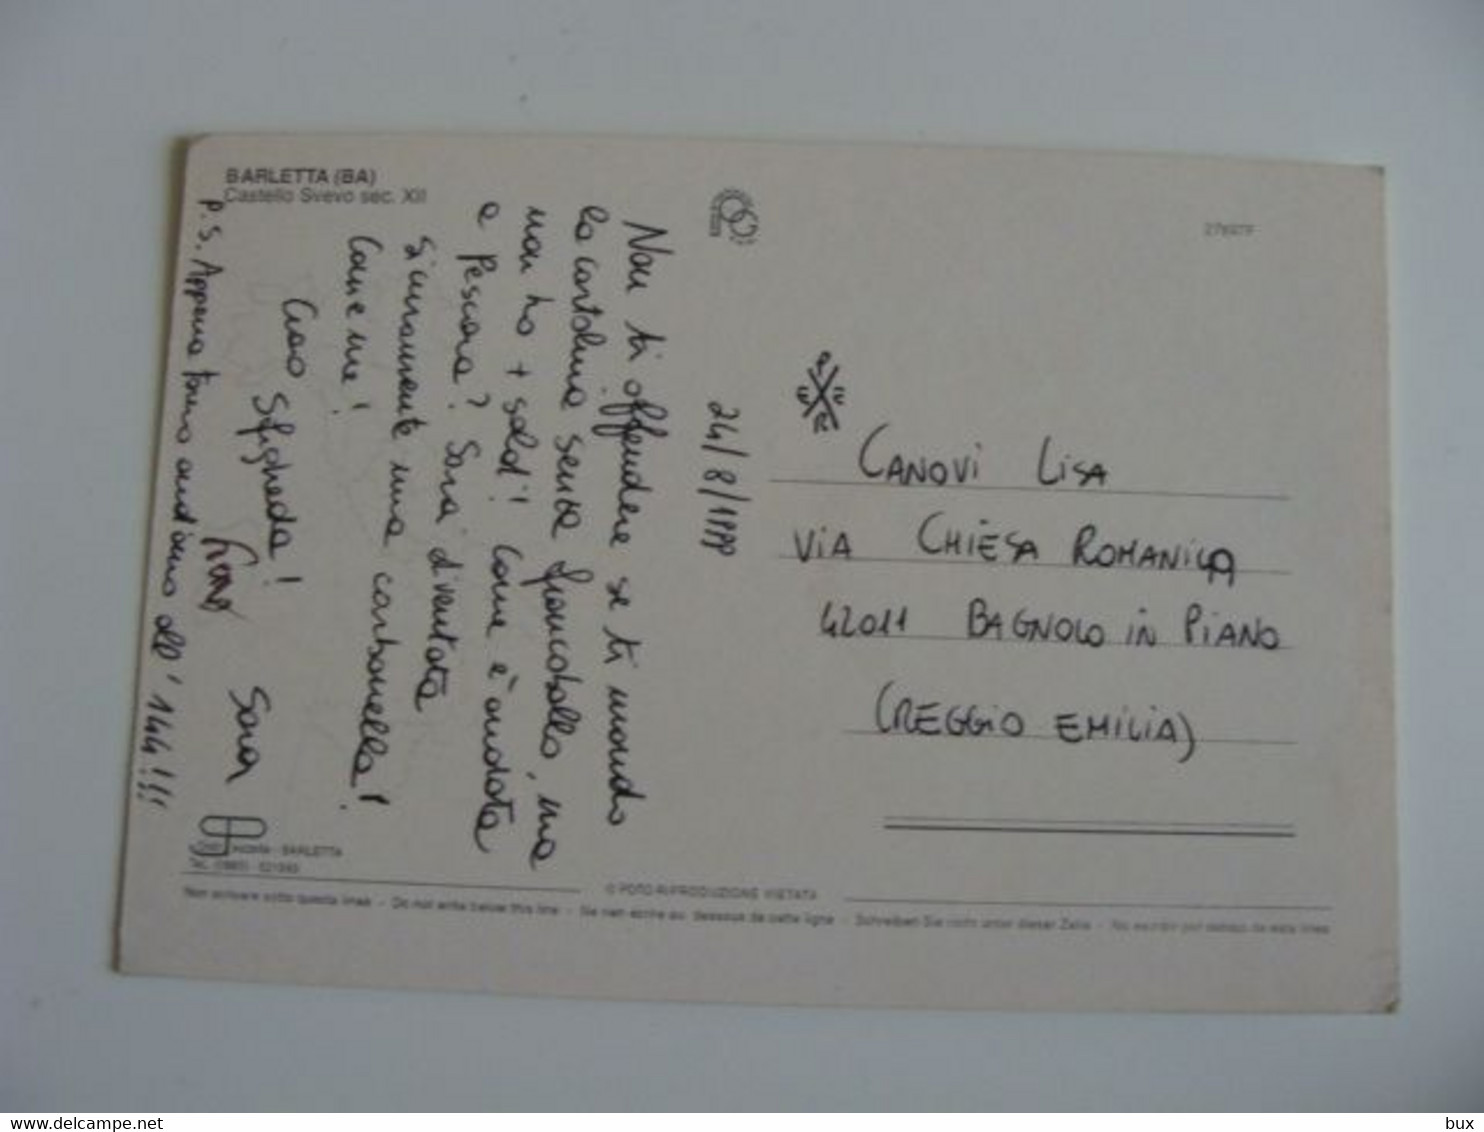 BARLETTA (BA)
Castello Svevo sec. XII
24/8/1999
Non ti offendere se ti mando
la cartolina senza francobollo, ma
non ho + soldi! Come è andata
a Pescara? Sarai diventata
sicuramente una carbonella!
Come me!
Ciao Sfigheda!
Sara
P.S. Appena torno andiamo all' 144!!!
CANOVI LISA
VIA CHIESA ROMANICA
42011 BAGNOLO IN PIANO
(REGGIO EMILIA)
BARLETTA
© FOTO RIPRODUZIONE VIETATA
Non scrivere sotto questa linea - Do not write below this line - Ne rien écrire au dessous de cette ligne - Schreiben Sie nicht unter dieser Zeile - No escribir por debajo de esta linea
bux
delcampe.net